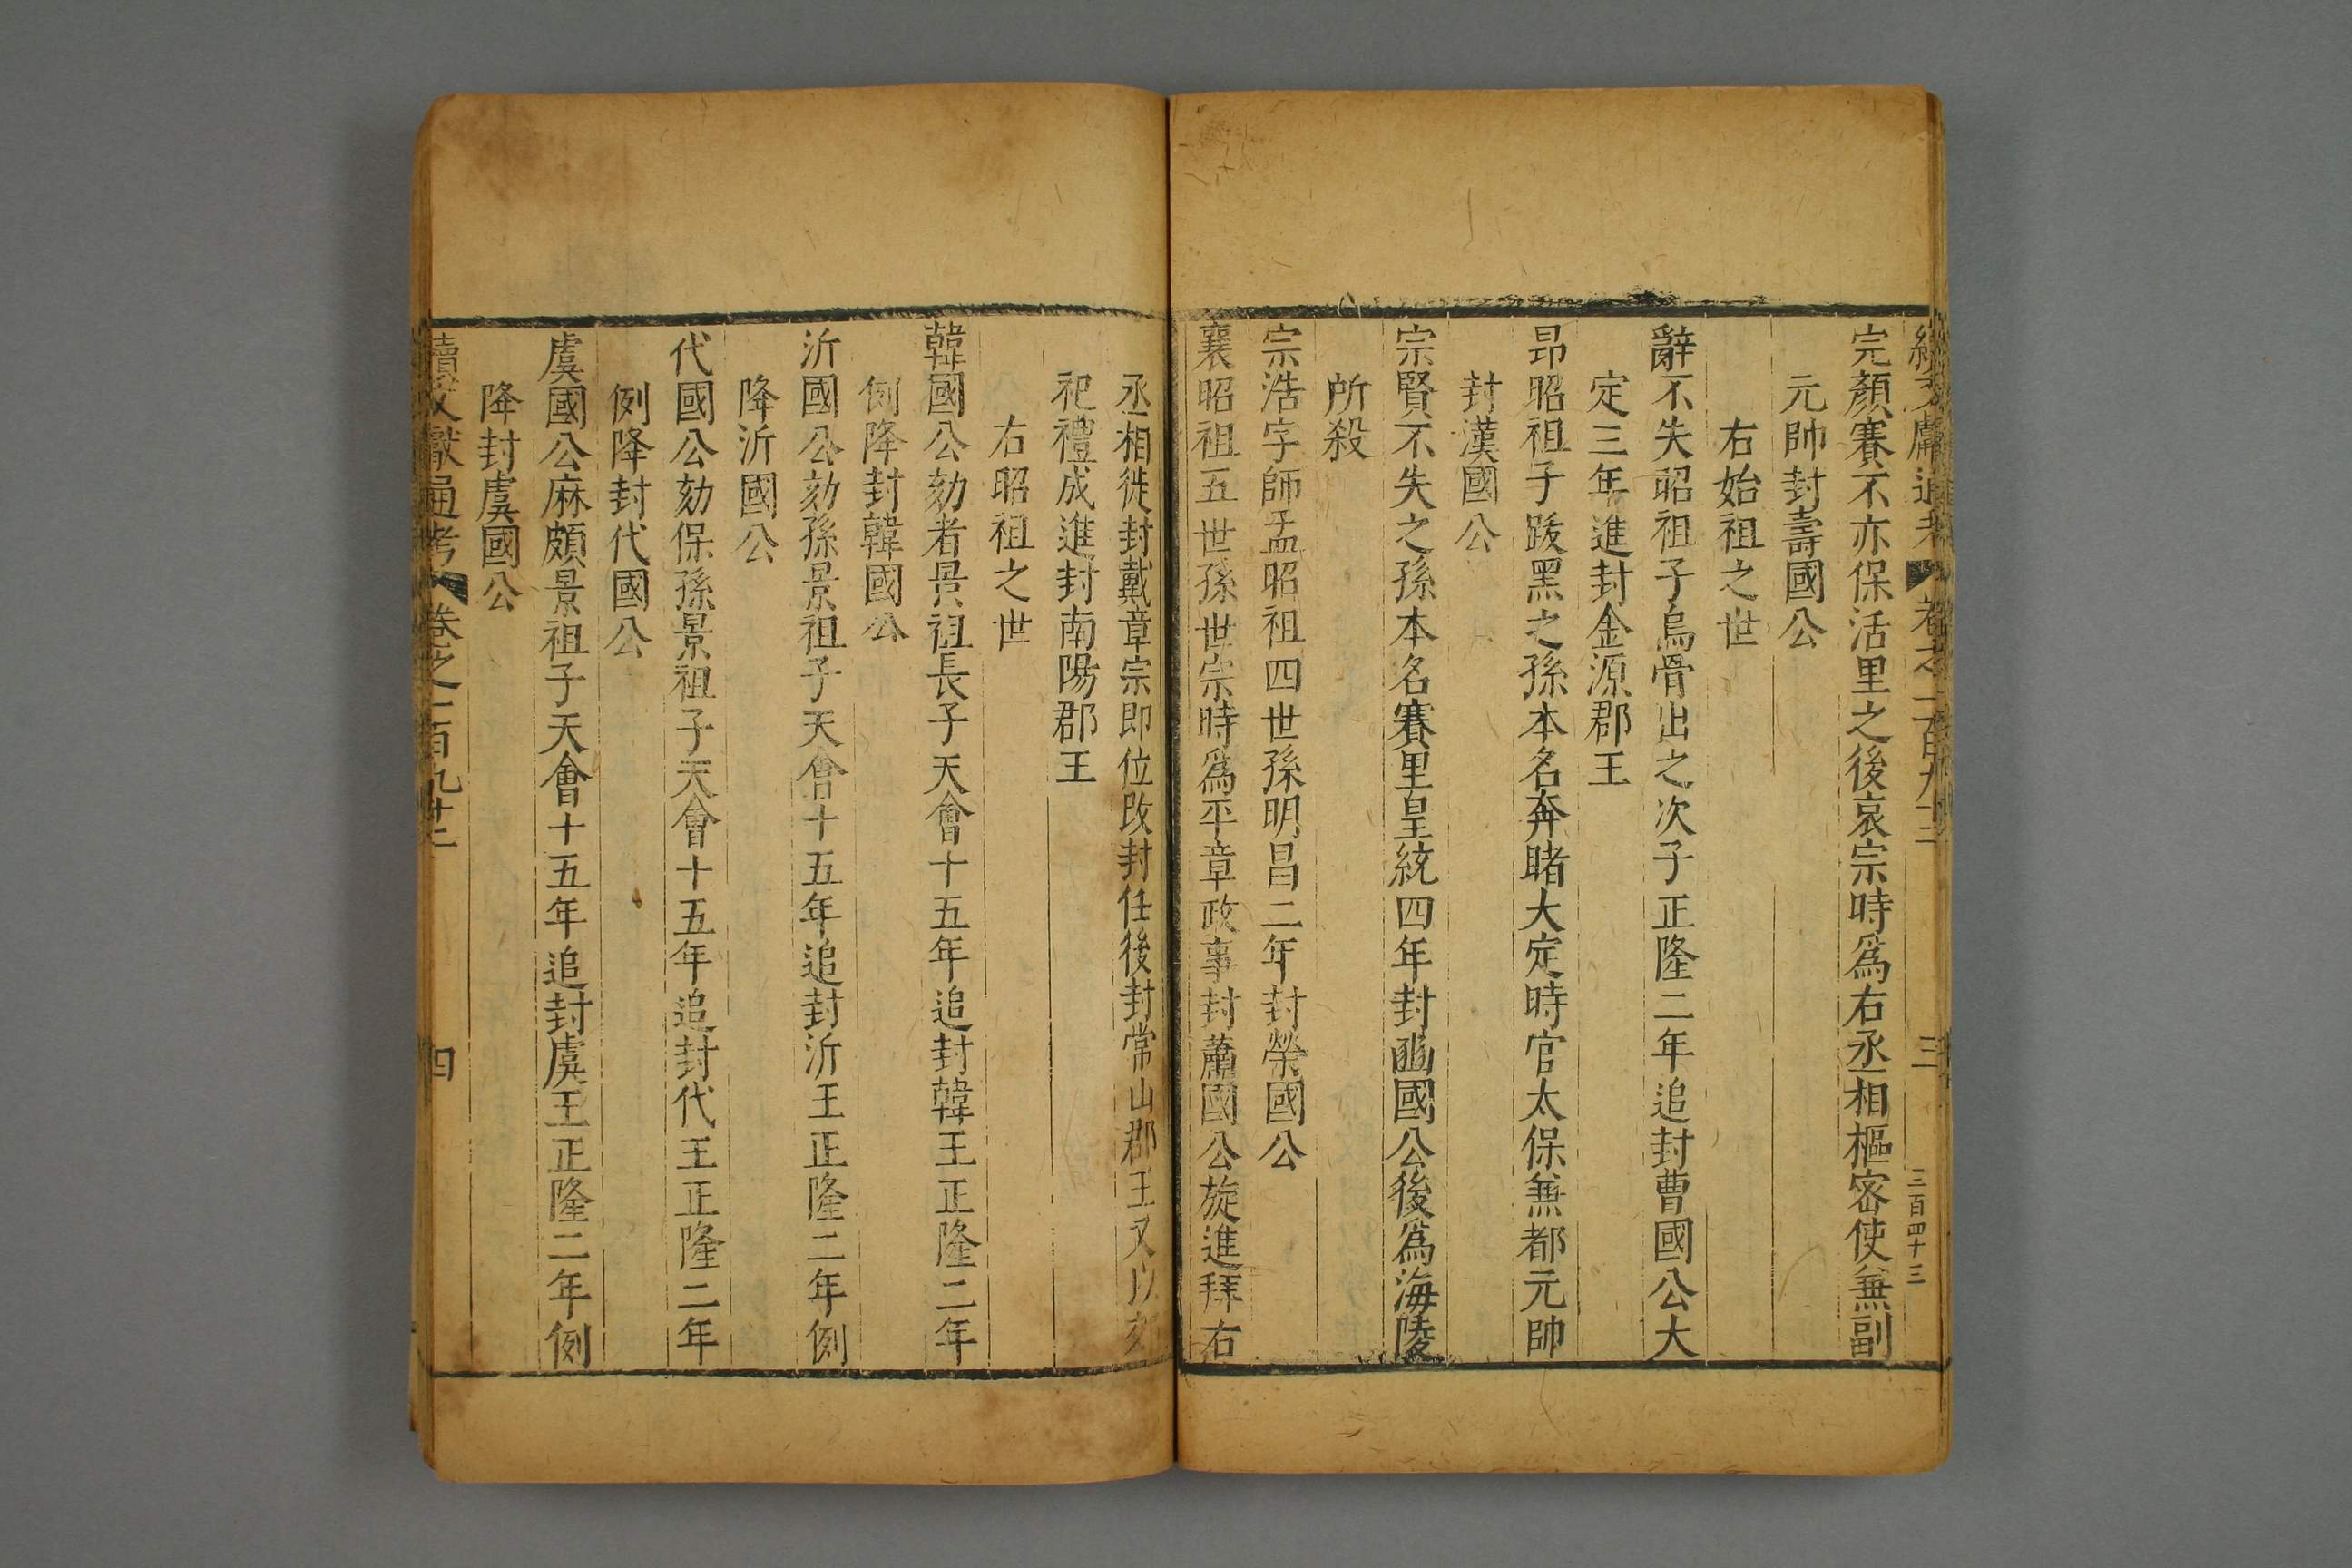 續文獻通考 卷之一百九十二 三 三百四十三
完顏賽不亦保活里之後哀宗時爲右丞相樞密使兼副
元帥封壽國公
右始祖之世
辭不失昭祖子烏骨出之次子正隆二年追封曹國公大
定三年進封金源郡王
昂昭祖子跋黑之孫本名奔睹大定時官太保兼都元帥
封漢國公
宗賢不失之孫本名賽里皇統四年封豳國公後爲海陵
所殺
宗浩字師孟昭祖四世孫明昌二年封榮國公
襄昭祖五世孫世宗時爲平章政事封蕭國公旋進拜右
丞相徙封戴章宗即位改封任後封常山郡王又以
祀禮成進封南陽郡王
右昭祖之世
韓國公劾者景祖長子天會十五年追封韓王正隆二年
例降封韓國公
沂國公劾孫景祖子天會十五年追封沂王正隆二年例
降沂國公
代國公劾保孫景祖子天會十五年追封代王正隆二年
例降封代國公
虞國公麻頗景祖子天會十五年追封虞王正隆二年例
降封虞國公
續文獻通考 卷之一百九十二 四